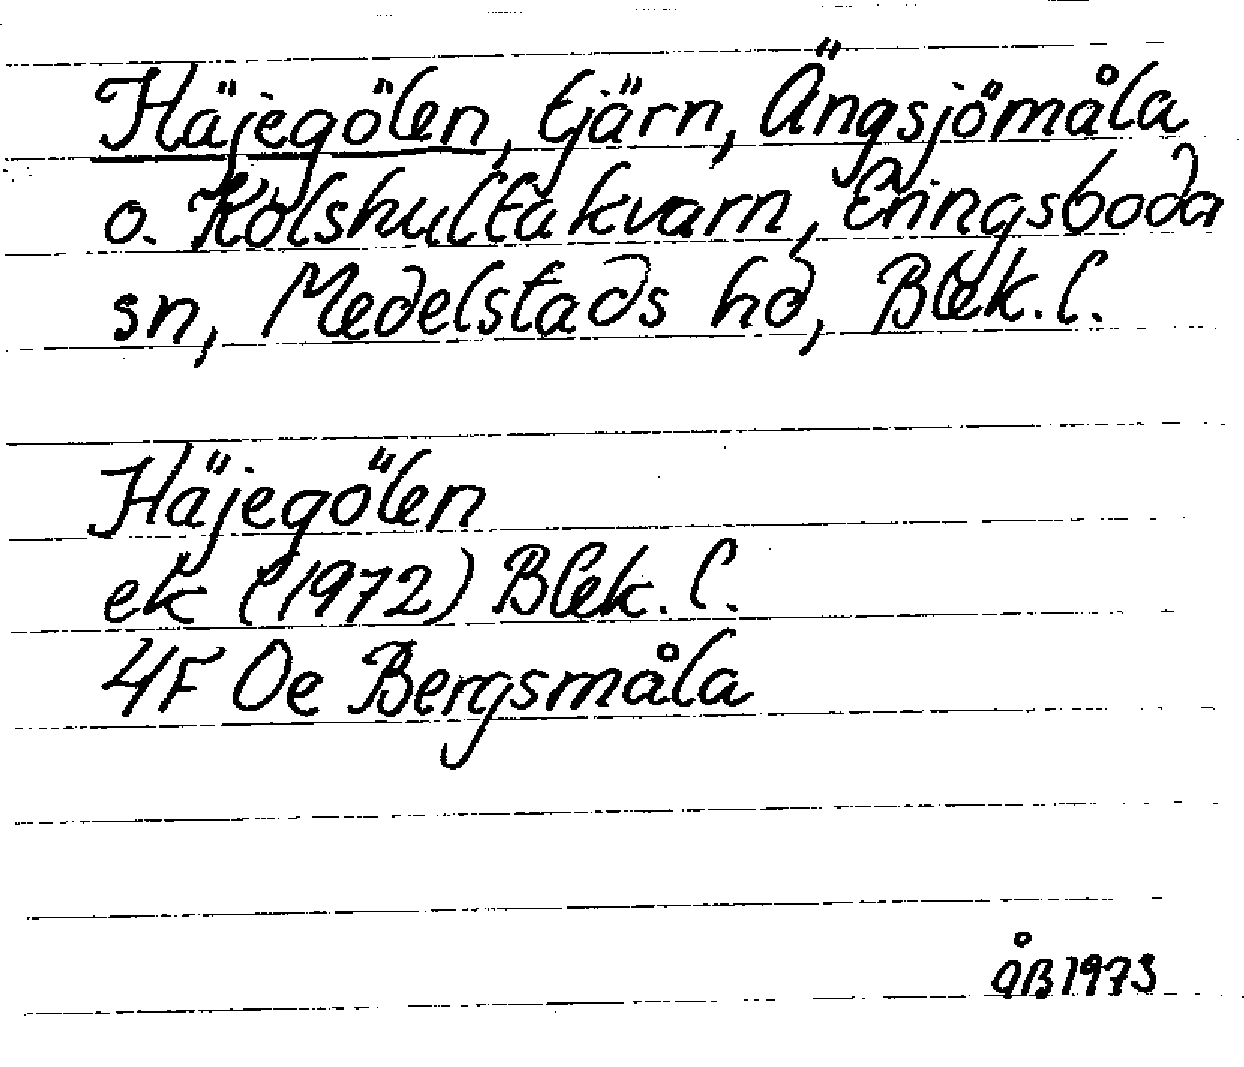 Häjegölen, tjärn, Ängsjömåla
o. Kölshultakvarn, Eringsboda
sn, Medelstads hd, Blek. l.
Häjegölen
ek (1972) Blek. l.
4F 0e Bergsmåla
åB 1973